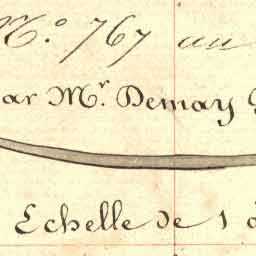 N.º 767 au
par Mr. Demay
Echelle de 1 à